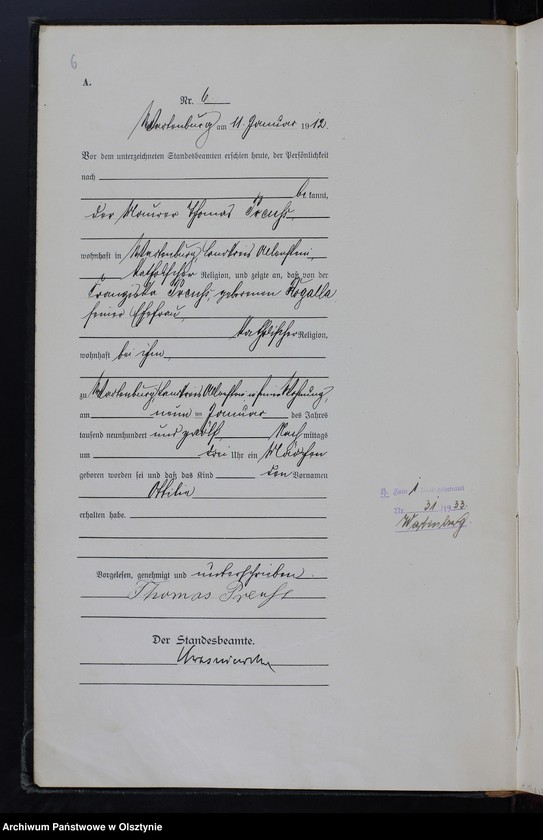 6
A.
Nr. 6
Wartenburg am 11. Januar 1912.
Vor dem unterzeichneten Standesbeamten erschien heute, der Persönlichkeit
nach
bekannt,
der Maurer Thomas Preuß
wohnhaft in Wartenburg, Landkreis Allenstein,
katholischer Religion, und zeigte an, daß von der
Franziska Preuß, geborenen Rogalla
seiner Ehefrau,
katholischer Religion,
wohnhaft bei ihm,
zu Wartenburg, Landkreis Allenstein in seiner Wohnung,
am neun ten Januar des Jahres
tausend neunhundert und zwölf Nachmittags
um drei Uhr ein Mädchen
geboren worden sei und daß das Kind den Vornamen
Ottilie
erhalten habe.
Vorgelesen, genehmigt und unterschrieben.
Thomas Preuß
Der Standesbeamte.
1
Nr. 31/1933
Wartenburg.
Archiwum Państwowe w Olsztynie